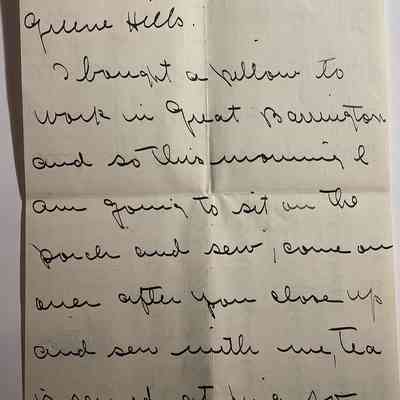 Greene Hills.
I bought a pillow to
work in Great Barrington
and so this morning I
am going to sit on the
porch and sew, come on
over after you close up
and sew with me, Tea
is served at five so